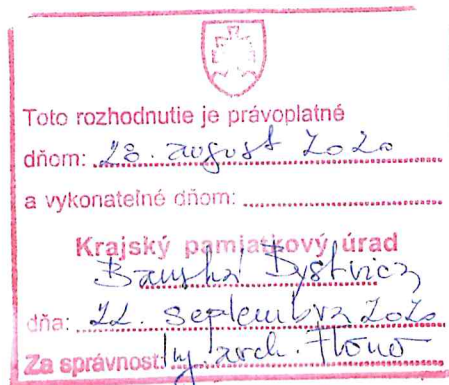 Toto rozhodnutie je právoplatné
dňom: 28. august 2020
a vykonateľné dňom:
Krajský pamiatkový úrad
Banská Bystrica
dňa: 22. septembra 2020
Za správnosť: Ing. arch.